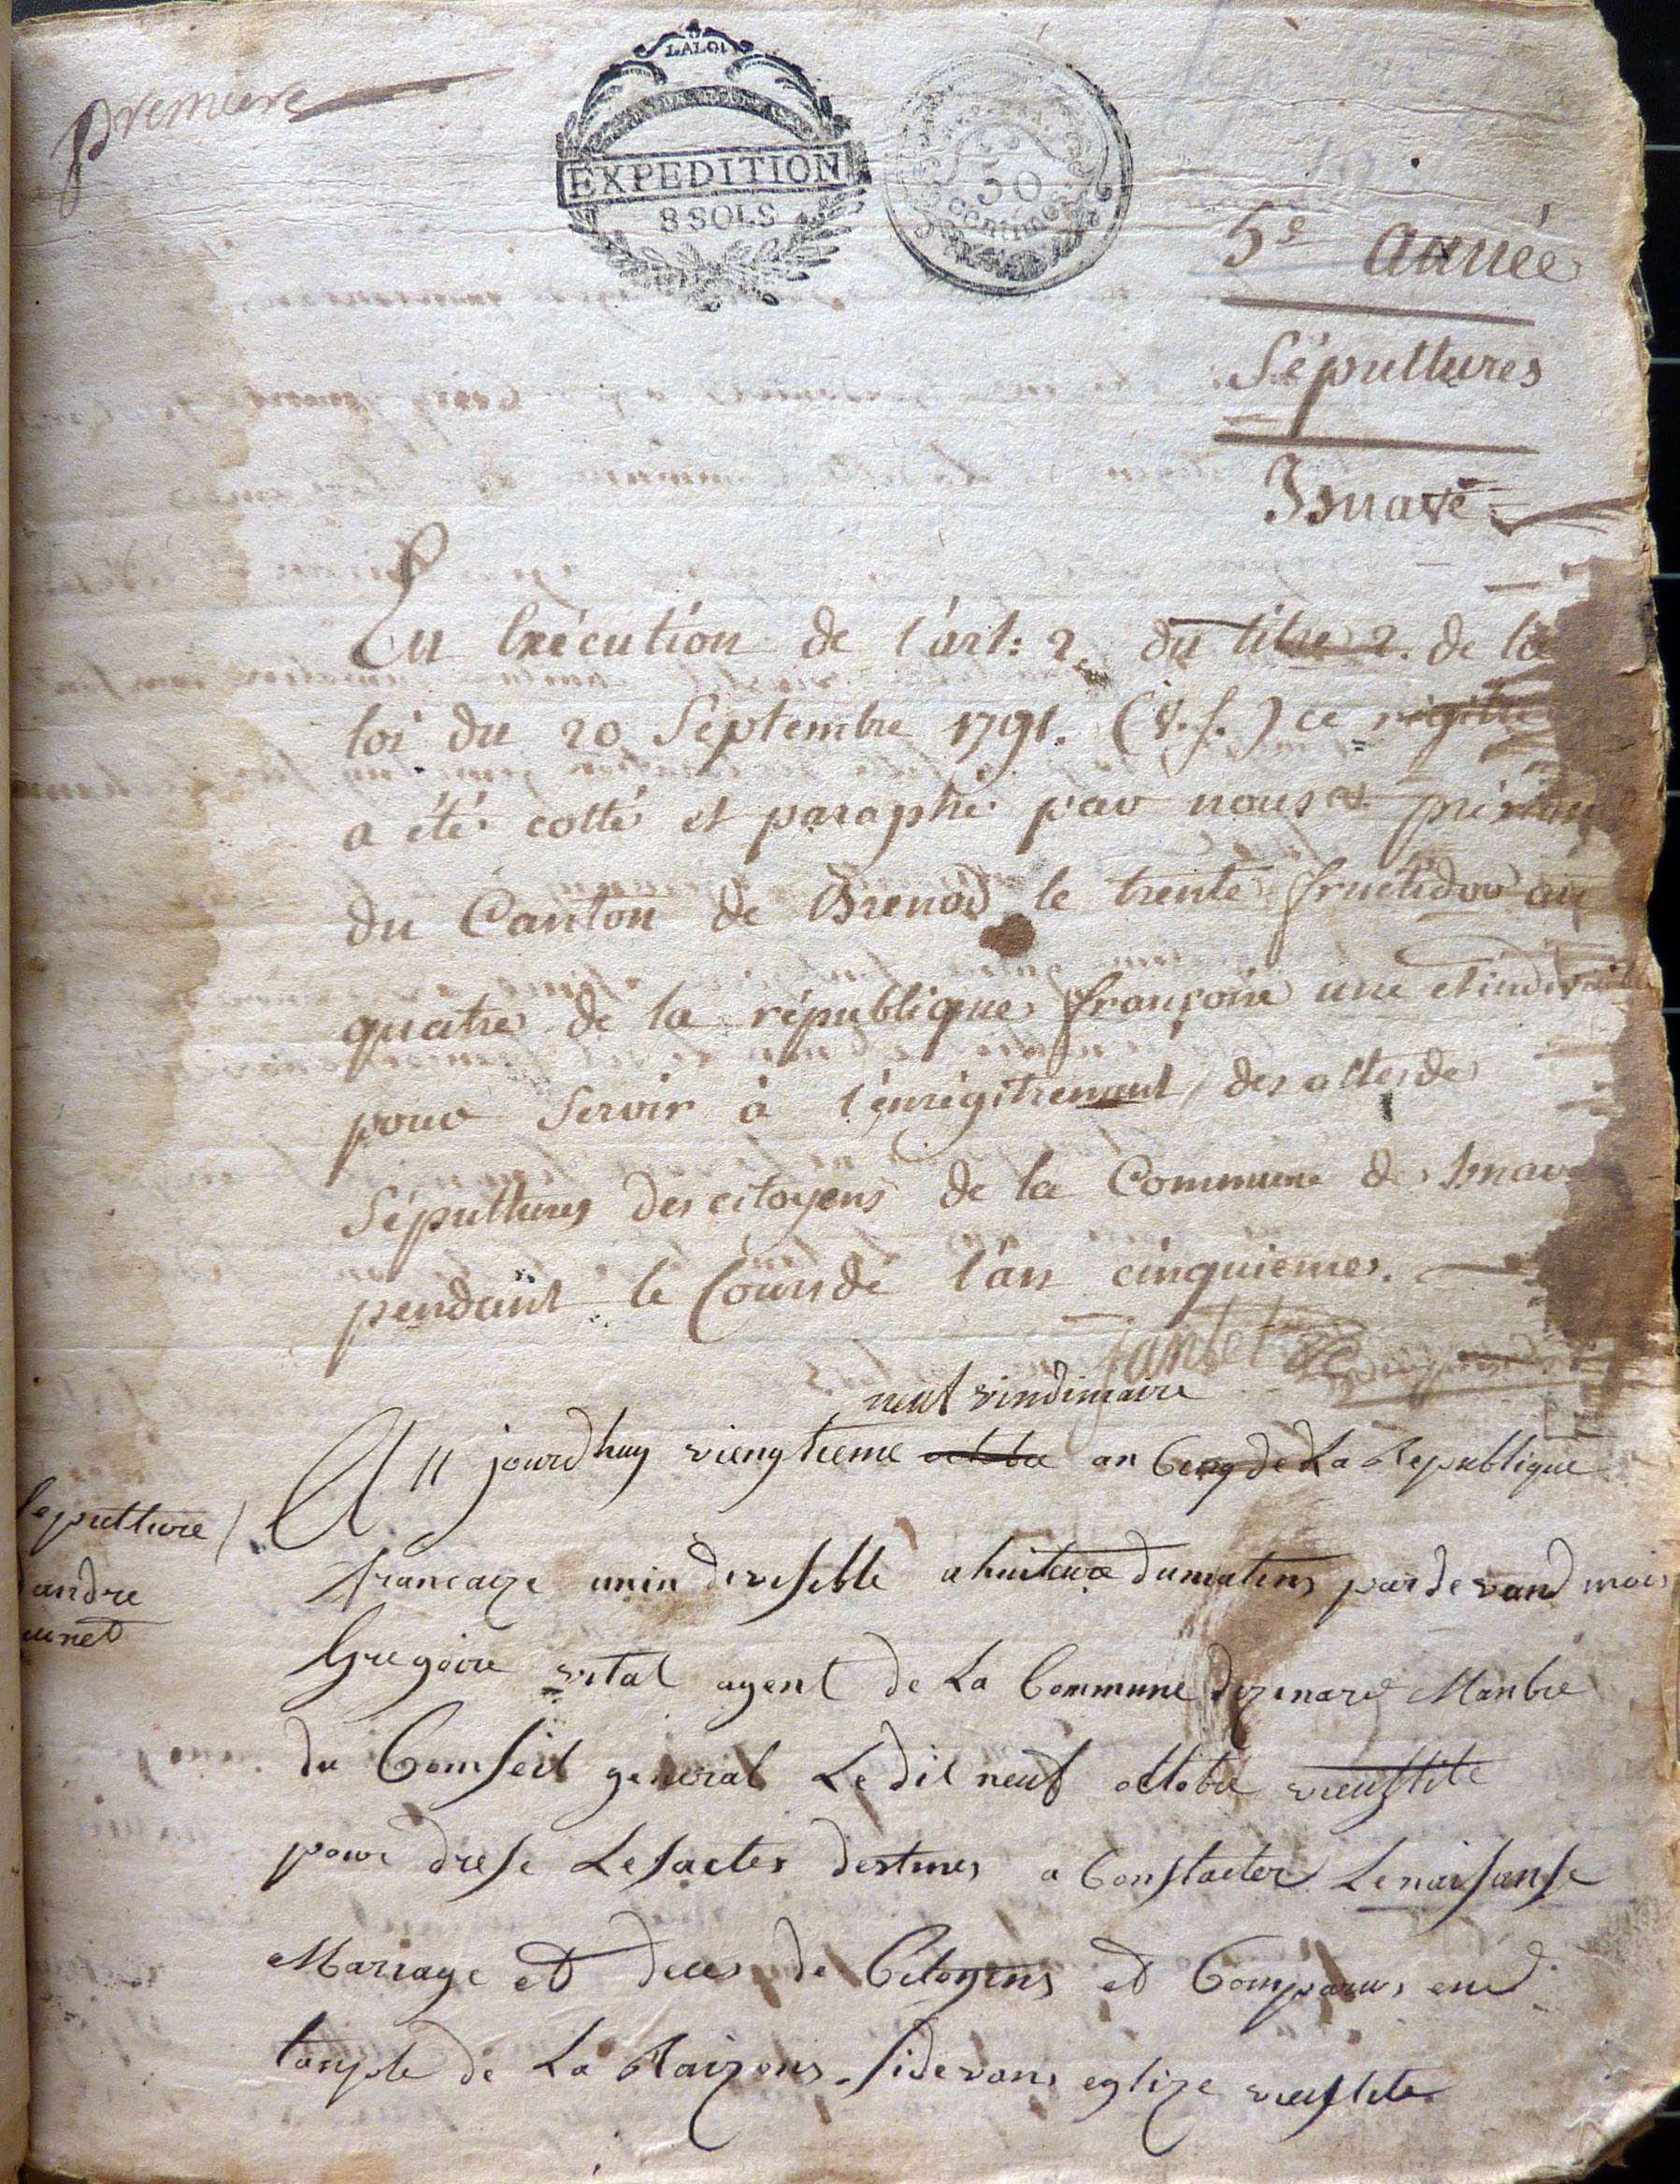 premiere
LA LOI
EXPEDITION
8 SOLS
50
centimes
5e année
Sépultures
Isnave
En Exécution de l'art: 2. du titre 2. de la
loi du 20 Septembre 1791. (v. s.) ce régître
a été cotté et paraphé par nous
du Canton de Brenod le trente fructidor an
quatre de la république françoise une et indivisible
pour servir à l'enrégitrement des actes de
Sépultures des citoyens de la Commune de Isnave
pendant le Cours de l'an cinquieme.
Jantet
neuf vindimaire
Au jourdhuy viengtieme octobre an Cenq de La Republique
francaize unin devisible a huiteure du matins par de vand moi
Sepulture
andre
Gregoire vital agent de La Commune dizenave Manbre
du Conseil general Le dit neuf octobre vieustile
pour drese Lesactes destines a Constater Lenaisanse
Mariage et deces de Citoyens et Comparus end
tanple de La Raizons sidevans eglize vieustile